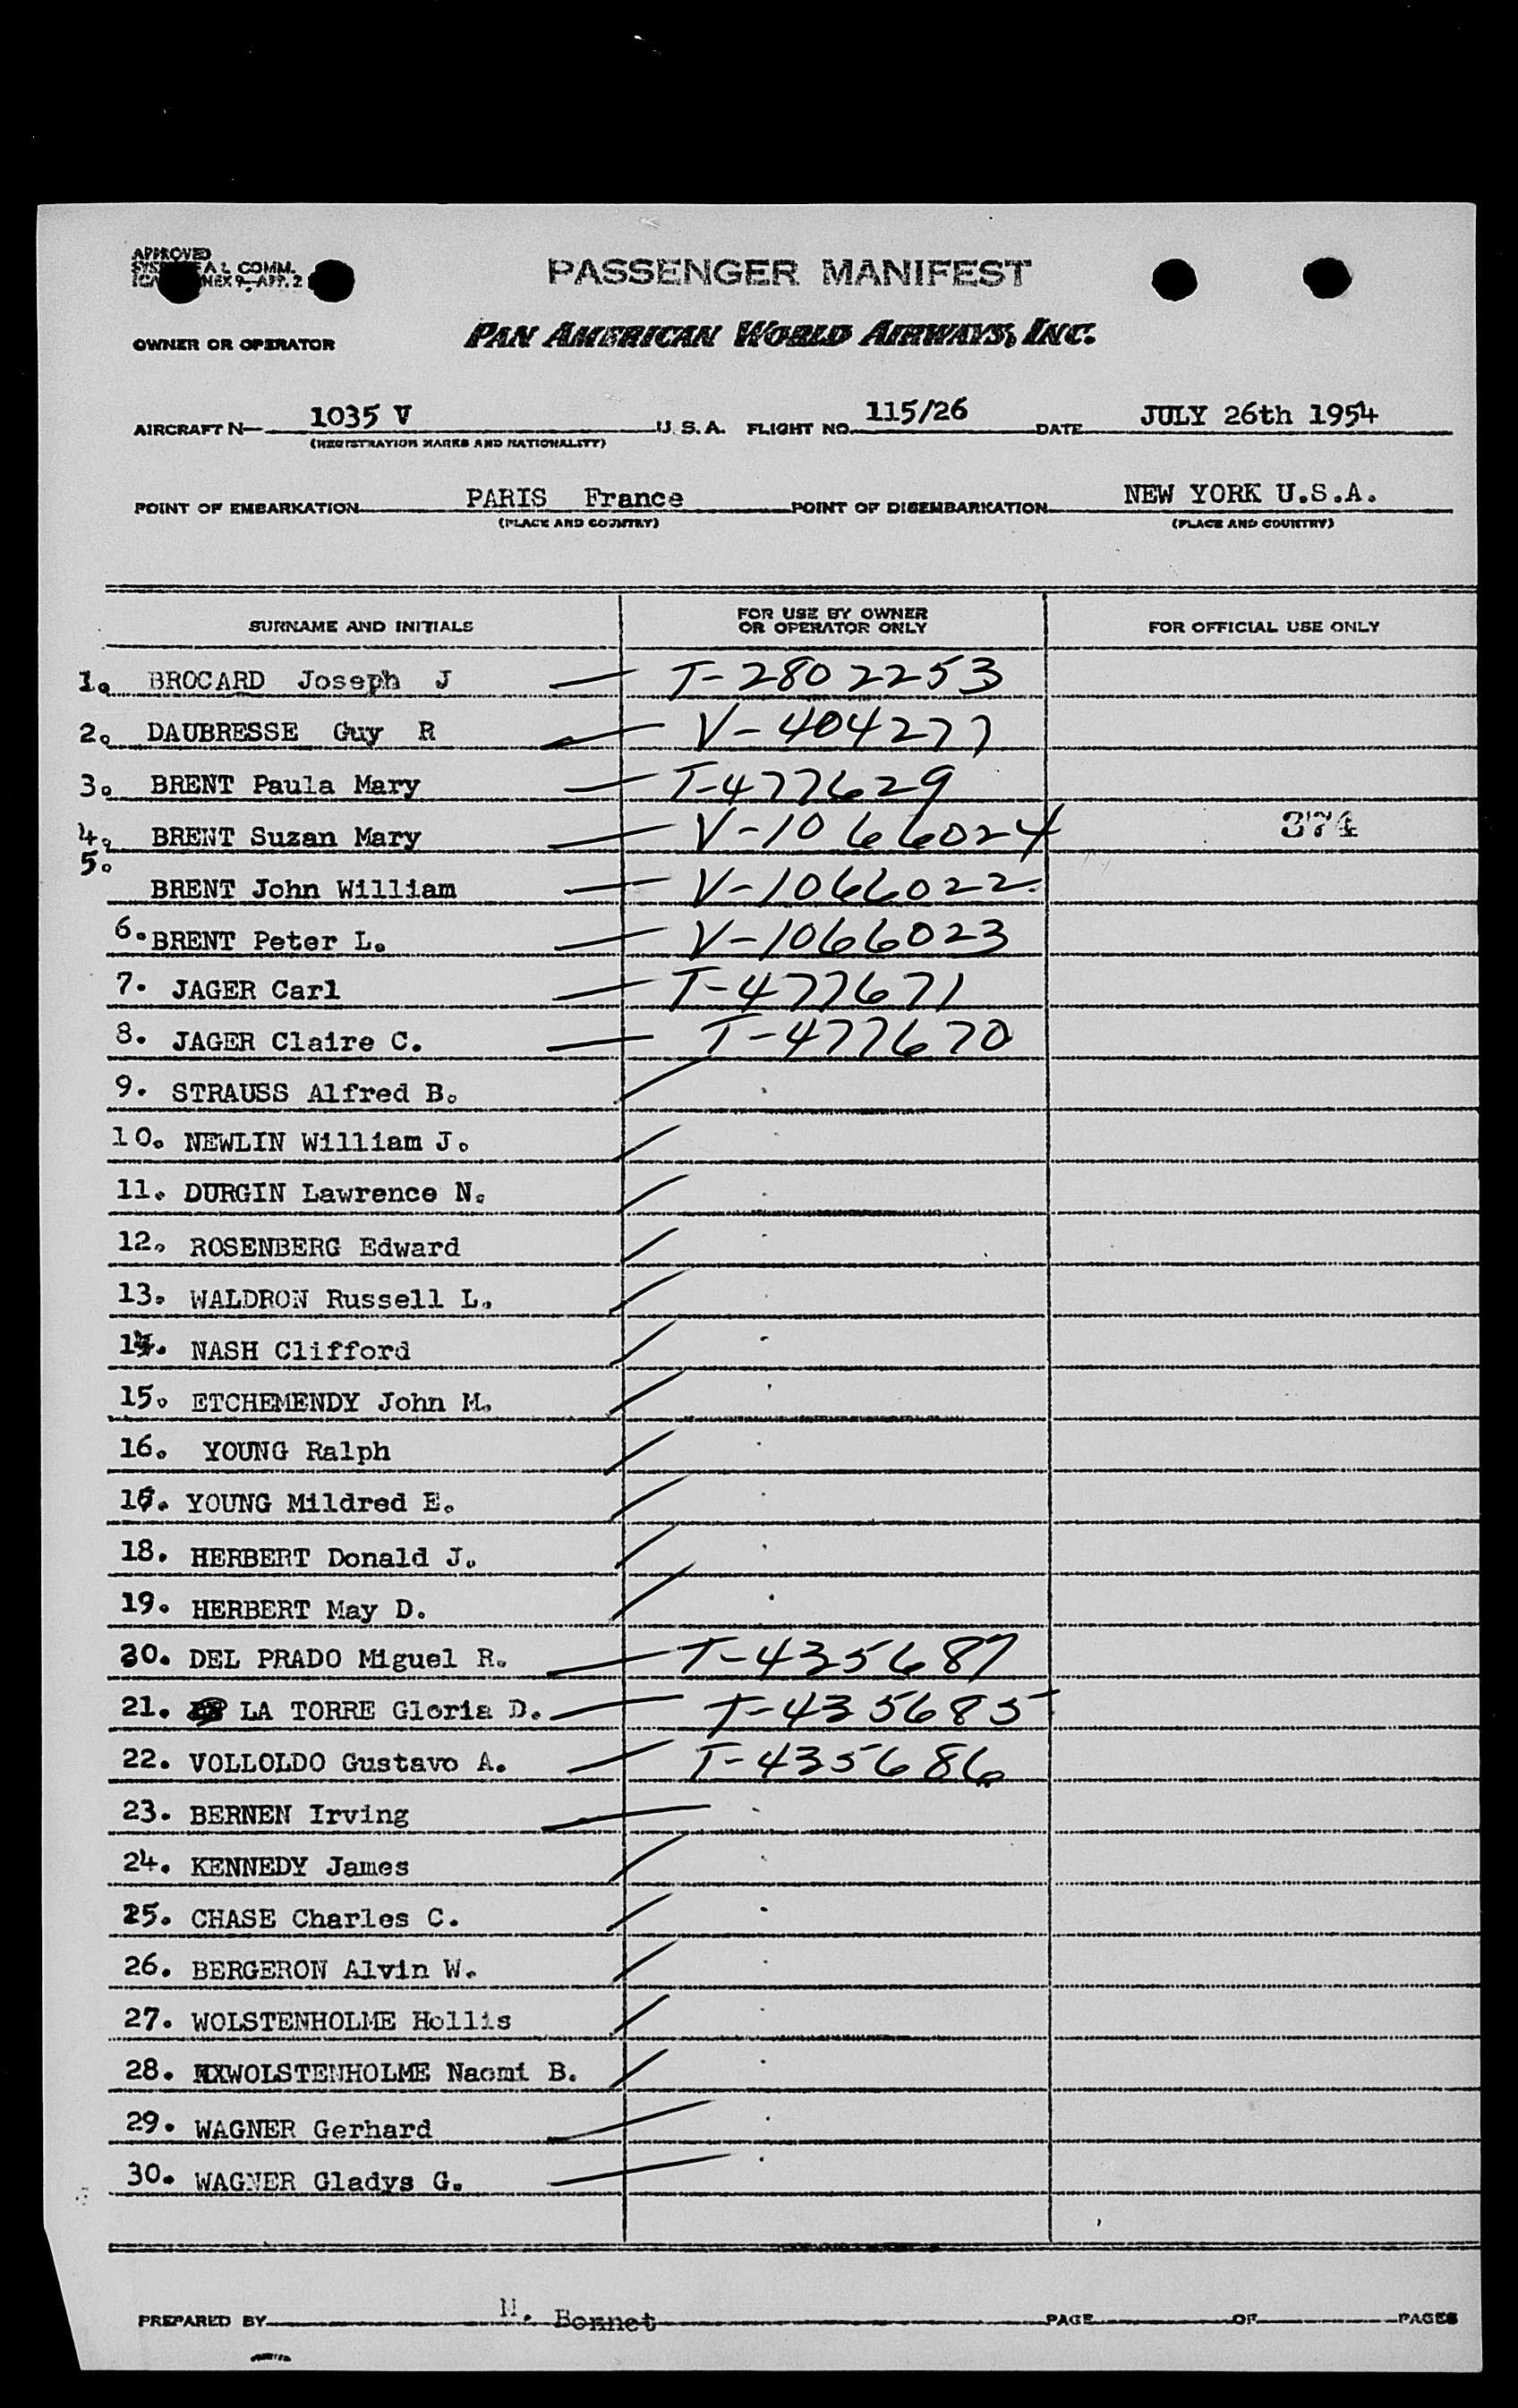 APPROVED
COMM.
9-APP. 2
PASSENGER MANIFEST
OWNER OR OPERATOR PAN AMERICAN WORLD AIRWAYS, INC.
AIRCRAFT N— 1035 V U. S. A. FLIGHT NO. 115/26 DATE JULY 26th 1954
(REGISTRATION MARKS AND NATIONALITY)
POINT OF EMBARKATION PARIS France POINT OF DISEMBARKATION NEW YORK U.S.A.
(PLACE AND COUNTRY) (PLACE AND COUNTRY)
SURNAME AND INITIALS FOR USE BY OWNER OR OPERATOR ONLY FOR OFFICIAL USE ONLY
1. BROCARD Joseph J — T-2802253
2. DAUBRESSE Guy R — V-404277
3. BRENT Paula Mary — T-477629
4. BRENT Suzan Mary — V-1066024 374
5. BRENT John William — V-1066022
6. BRENT Peter L. — V-1066023
7. JAGER Carl — T-477671
8. JAGER Claire C. — T-477670
9. STRAUSS Alfred B.
10. NEWLIN William J.
11. DURGIN Lawrence N.
12. ROSENBERG Edward
13. WALDRON Russell L.
14. NASH Clifford
15. ETCHEMENDY John M.
16. YOUNG Ralph
YOUNG Mildred E.
18. HERBERT Donald J.
19. HERBERT May D.
20. DEL PRADO Miguel R. — T-435687
21. LA TORRE Gloria D. — T-435685
22. VOLLOLDO Gustavo A. — T-435686
23. BERNEN Irving
24. KENNEDY James
25. CHASE Charles C.
26. BERGERON Alvin W.
27. WOLSTENHOLME Hollis
28. WOLSTENHOLME Naomi B.
29. WAGNER Gerhard
30. WAGNER Gladys G.
PREPARED BY Bonnet PAGE OF PAGES